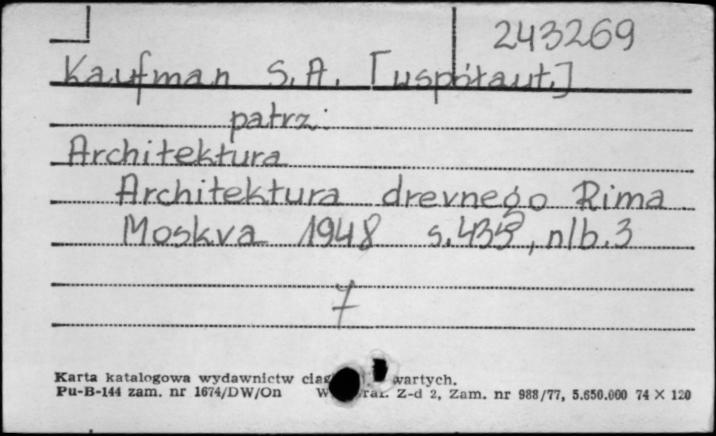 243269
Kaufman S.A. [współaut.]
patrz:
Architektura
Architektura drevnego Rima
Moskva 1948 s.435, nlb.3
7
Karta katalogowa wydawnictw ciąg wartych.
Pu-B-144 zam. nr 1674/DW/On Z-d 2, Zam. nr 988/77, 5.650.000 74 X 120